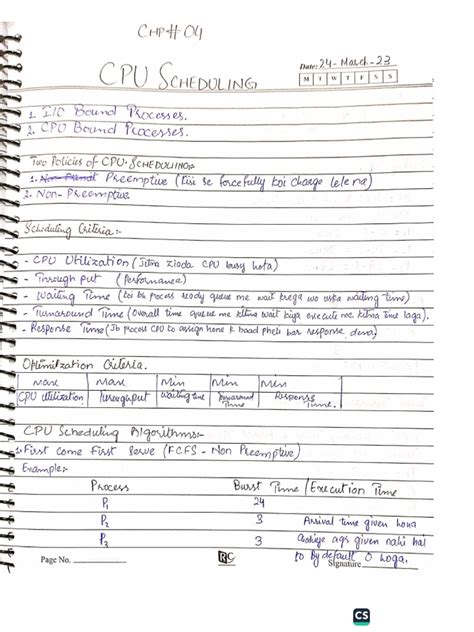 CHP# 04
Date: 24-March-23
CPU SCHEDULING
M T W T F S S
1. I/O Bound Processes.
2. CPU Bound Processes.
Two Policies of CPU-SCHEDULING:-
1. Preemptive (Kisi se forcefully koi change lelena)
2. Non-Preemptive
Scheduling Criteria:-
- CPU Utilization (Jitna ziada CPU busy hota)
- Through put (Performance)
- Waiting Time (koi bi process ready queue me wait krega wo uska waiting time)
- Turnaround Time (Overall time queue me kitna wait kiya execute me kitna time laga).
- Response Time (Jb process CPU to assign hone k baad pheli bar response dena)
Optimization Criteria.
Max Max Min Min Min
CPU utilization Throughput Waiting time Turnaround Time Response Time.
CPU Scheduling Algorithms:-
First Come First Serve (FCFS - Non Preemptive)
Example:-
Process Burst Time / Execution Time
P1 24
P2 3 Arrival time given hona
P3 3 chahiye agr given nahi hai
to by default 0 hoga.
Page No. RC Signature
CS